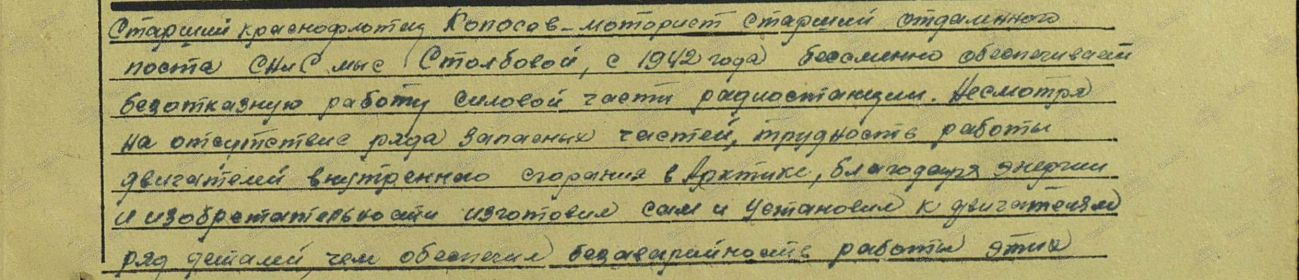 Старший краснофлотец Копосов-моторист старший отдаленного
поста СНиС мыс Столбовой, с 1942 года бессменно обеспечивает
безотказную работу силовой части радиостанции. Несмотря
на отсутствие ряда запасных частей, трудность работы
двигателей внутреннего сгорания в Арктике, благодаря энергии
и изобретательности изготовил сам и установил к двигателям
ряд деталей, чем обеспечил безаварийность работы этих